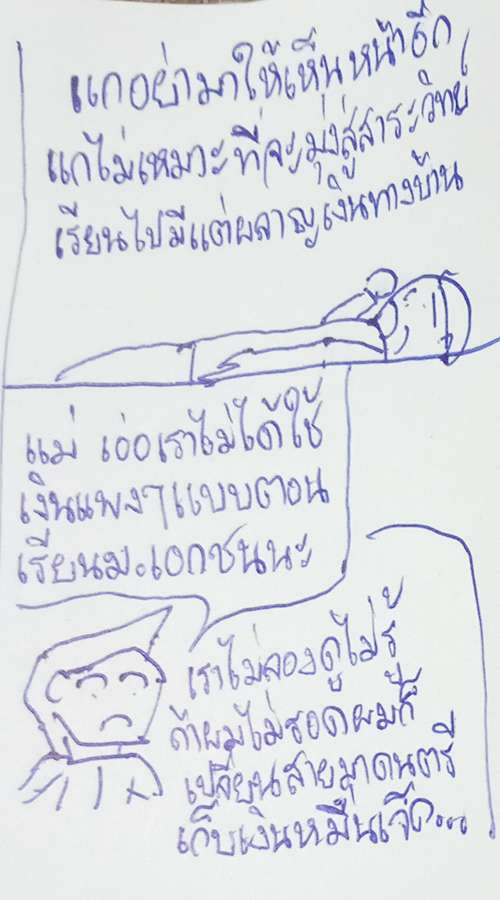 แกอย่ามาให้เห็นหน้าอีก
แกไม่เหมาะที่จะมุ่งสู่สาระวิทย์
เรียนไปมีแต่ผลาญเงินทางบ้าน
แม่ เอ่อเราไม่ได้ใช้
เงินแพงๆแบบตอน
เรียนม.เอกชนนะ
เราไม่ลองดูไม่รู้
ถ้าผมไม่รอดผมก็
เปลี่ยนสายมาดนตรี
เก็บเงินหมื่นเจ็ด...